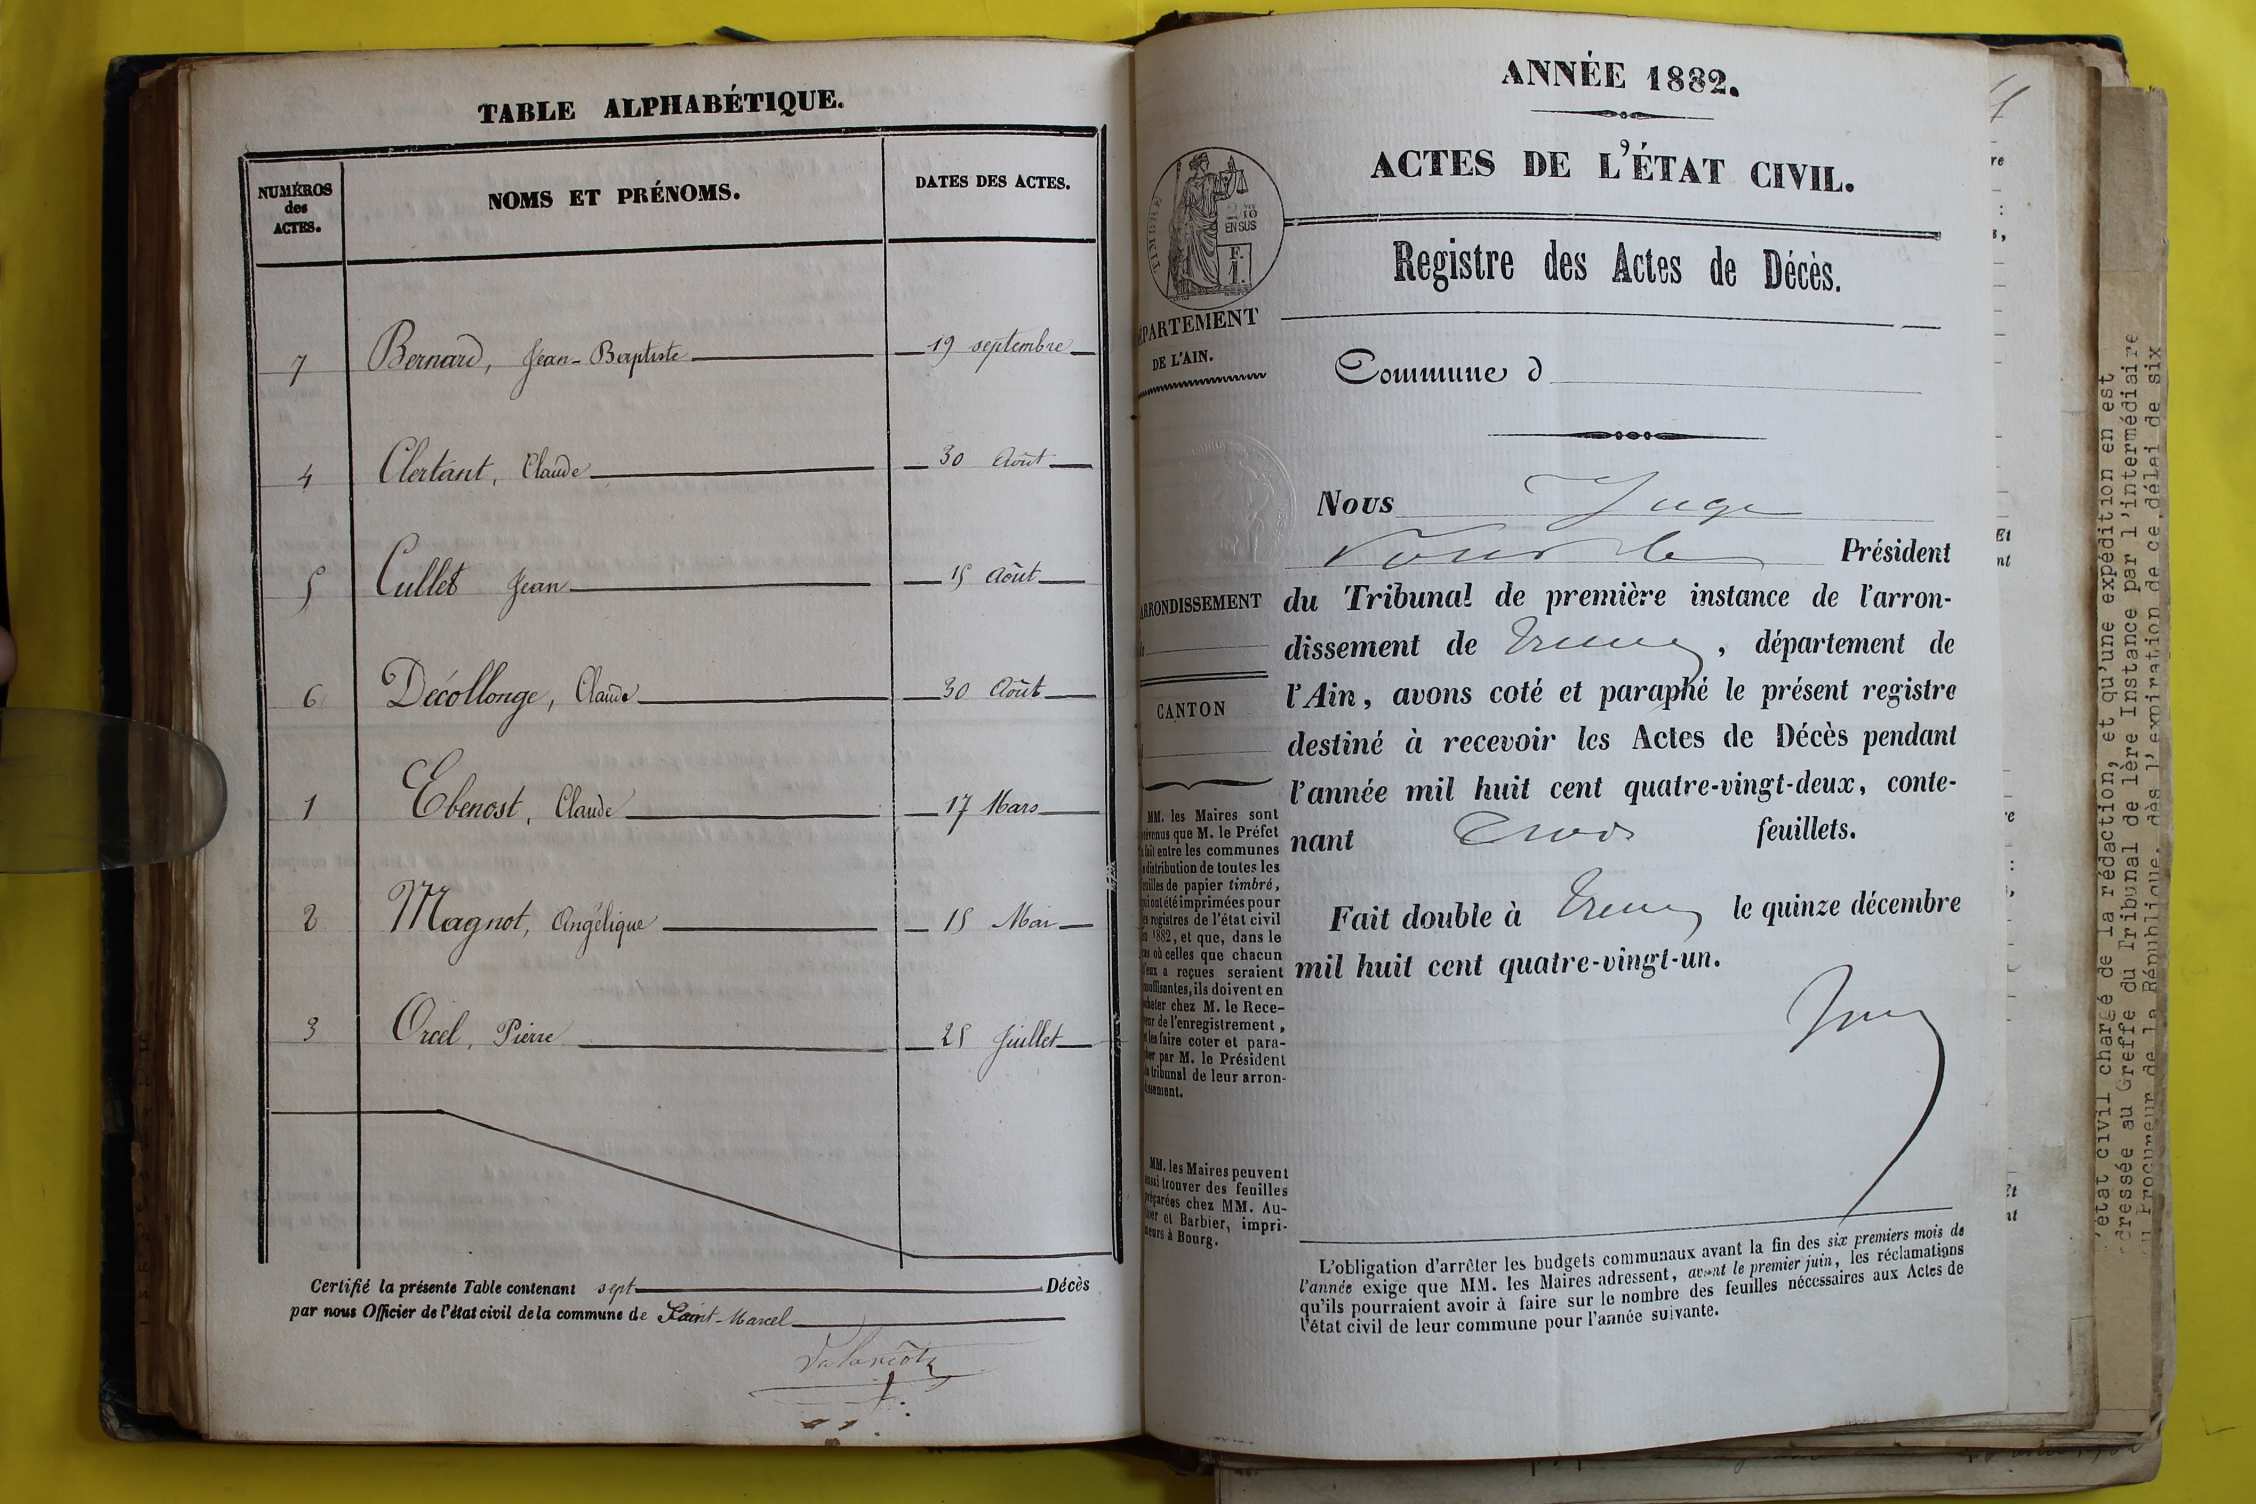 TABLE ALPHABÉTIQUE.
NUMÉROS
des
ACTES.
NOMS ET PRÉNOMS.
DATES DES ACTES.
7 Bernard, Jean-Baptiste 19 septembre
4 Clertant, Claude 30 Août
5 Cullet Jean 15 Août
6 Décollonge, Claude 30 Août
1 Ebenost, Claude 17 Mars
2 Magnot, Angélique 15 Mai
3 Orcel, Pierre 25 Juillet
Certifié la présente Table contenant sept Décès
par nous Officier de l'état civil de la commune de Saint-Marcel
ANNÉE 1882.
ACTES DE L'ÉTAT CIVIL.
TIMBRE
EN SUS
F.
1.
Registre des Actes de Décès.
DÉPARTEMENT
DE L'AIN.
Commune d
Nous Juge
Président
ARRONDISSEMENT
du Tribunal de première instance de l'arron-
dissement de Trévoux, département de
l'Ain, avons coté et paraphé le présent registre
CANTON
destiné à recevoir les Actes de Décès pendant
l'année mil huit cent quatre-vingt-deux, conte-
nant Trois feuillets.
Fait double à Trévoux le quinze décembre
mil huit cent quatre-vingt-un.
MM. les Maires sont
prévenus que M. le Préfet
a fait entre les communes
la distribution de toutes les
feuilles de papier timbré,
qui ont été imprimées pour
les registres de l'état civil
en 1882, et que, dans le
cas où celles que chacun
d'eux a reçues seraient
insuffisantes, ils doivent en
acheter chez M. le Rece-
veur de l'enregistrement,
et les faire coter et para-
pher par M. le Président
du tribunal de leur arron-
dissement.
MM. les Maires peuvent
aussi trouver des feuilles
préparées chez MM. Au-
et Barbier, impri-
meurs à Bourg.
L'obligation d'arrêter les budgets communaux avant la fin des six premiers mois de
l'année exige que MM. les Maires adressent, avant le premier juin, les réclamations
qu'ils pourraient avoir à faire sur le nombre des feuilles nécessaires aux Actes de
l'état civil de leur commune pour l'année suivante.
'état civil chargé de la rédaction, et qu'une expédition en est
dressée au Greffe du Tribunal de 1ère Instance par l'intermédiaire
du Procureur de la République, dès l'expiration de ce délai de six